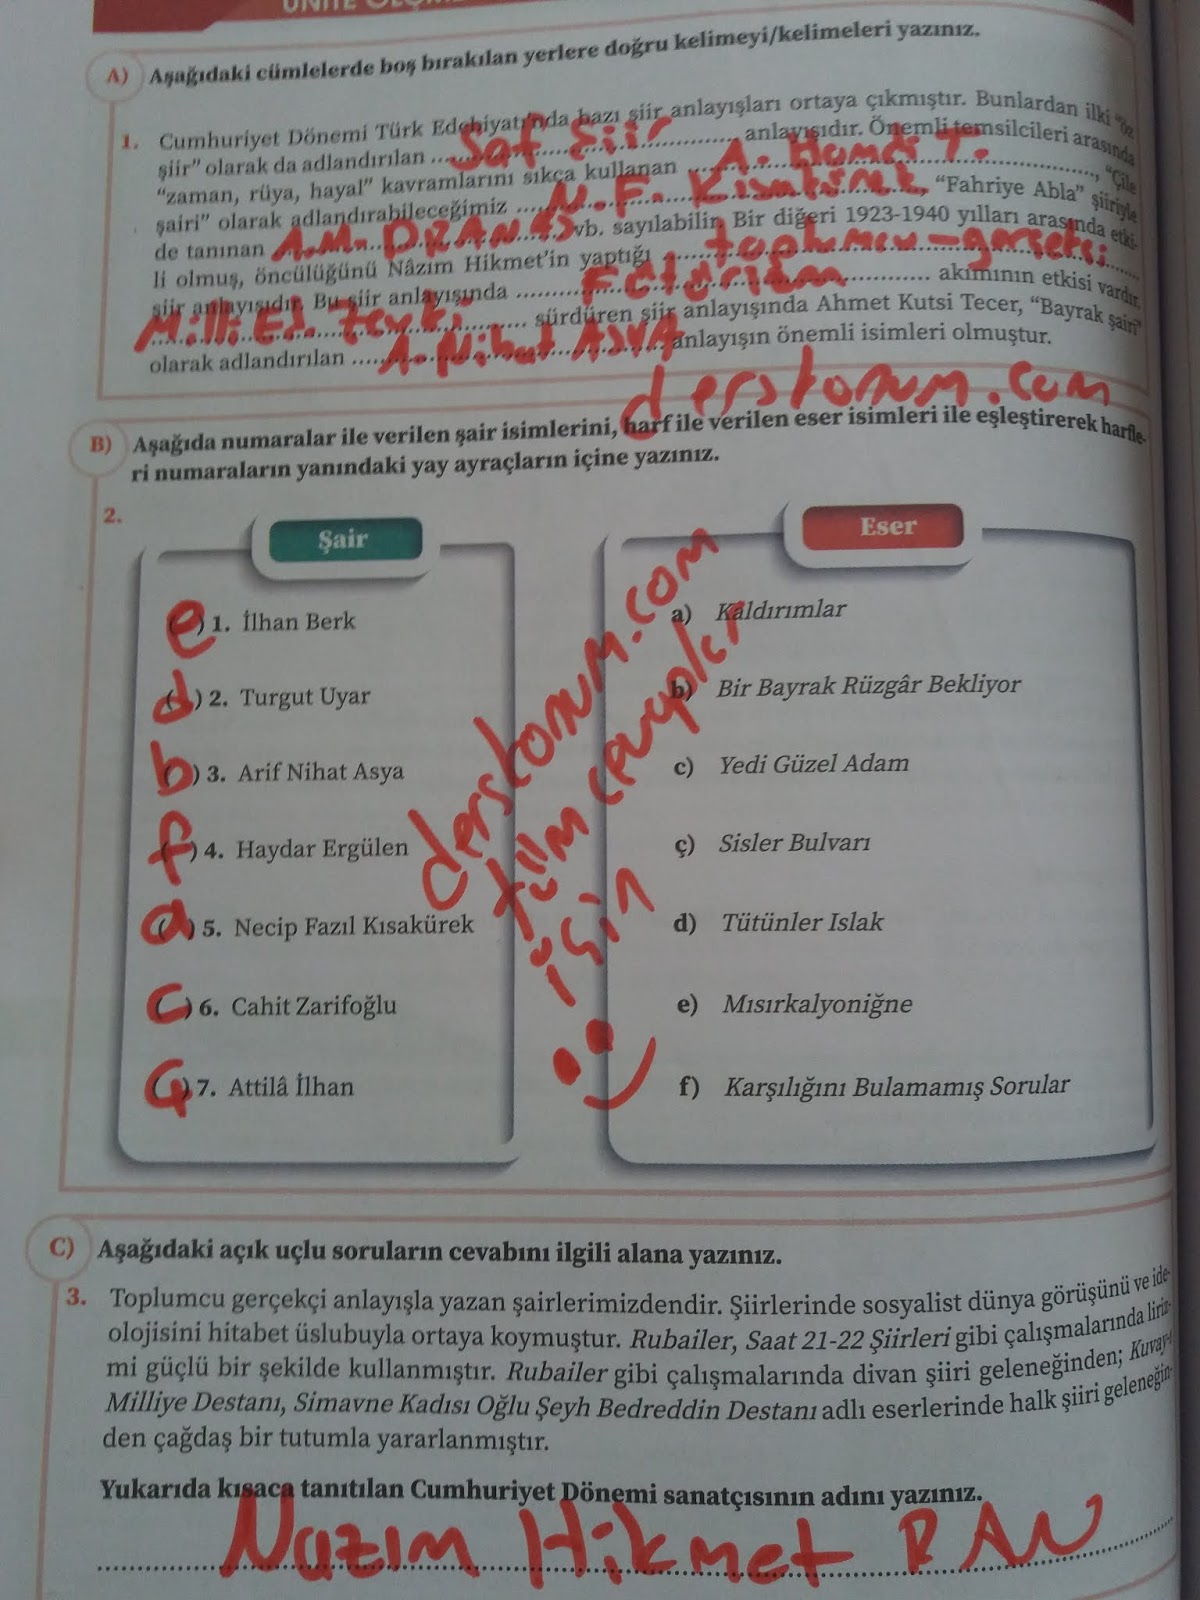 ÜNİTE ÖLÇME
A) Aşağıdaki cümlelerde boş bırakılan yerlere doğru kelimeyi/kelimeleri yazınız.
1. Cumhuriyet Dönemi Türk Edebiyatı'nda bazı şiir anlayışları ortaya çıkmıştır. Bunlardan ilki “öz
şiir” olarak da adlandırılan ... Saf Şiir ... anlayışıdır. Önemli temsilcileri arasında
“zaman, rüya, hayal” kavramlarını sıkça kullanan ... A. Hamdi T. ..., “Çile
şairi” olarak adlandırabileceğimiz ... N. F. Kısakürek ..., “Fahriye Abla” şiiriyle
de tanınan A.M. DRANAS vb. sayılabilir. Bir diğeri 1923-1940 yılları arasında etki-
li olmuş, öncülüğünü Nâzım Hikmet'in yaptığı ... toplumcu-gerçekçi
şiir anlayışıdır. Bu şiir anlayışında ... Fütürizm ... akımının etkisi vardır.
Milli Ed. Zevki ... sürdüren şiir anlayışında Ahmet Kutsi Tecer, “Bayrak şairi”
olarak adlandırılan ... A. Nihat ASYA ... anlayışın önemli isimleri olmuştur.
derstonum.com
B) Aşağıda numaralar ile verilen şair isimlerini, harf ile verilen eser isimleri ile eşleştirerek harfle-
ri numaraların yanındaki yay ayraçların içine yazınız.
2.
Şair
Eser
(e) 1. İlhan Berk
a) Kaldırımlar
(d) 2. Turgut Uyar
b) Bir Bayrak Rüzgâr Bekliyor
(b) 3. Arif Nihat Asya
c) Yedi Güzel Adam
(f) 4. Haydar Ergülen
ç) Sisler Bulvarı
(a) 5. Necip Fazıl Kısakürek
d) Tütünler Islak
(c) 6. Cahit Zarifoğlu
e) Mısırkalyoniğne
(ç) 7. Attilâ İlhan
f) Karşılığını Bulamamış Sorular
derstonum.com
tüm cevaplar
için
C) Aşağıdaki açık uçlu soruların cevabını ilgili alana yazınız.
3. Toplumcu gerçekçi anlayışla yazan şairlerimizdendir. Şiirlerinde sosyalist dünya görüşünü ve ide-
olojisini hitabet üslubuyla ortaya koymuştur. Rubailer, Saat 21-22 Şiirleri gibi çalışmalarında liriz-
mi güçlü bir şekilde kullanmıştır. Rubailer gibi çalışmalarında divan şiiri geleneğinden; Kuvay-ı
Milliye Destanı, Simavne Kadısı Oğlu Şeyh Bedreddin Destanı adlı eserlerinde halk şiiri geleneğin-
den çağdaş bir tutumla yararlanmıştır.
Yukarıda kısaca tanıtılan Cumhuriyet Dönemi sanatçısının adını yazınız.
Nazım Hikmet RAN